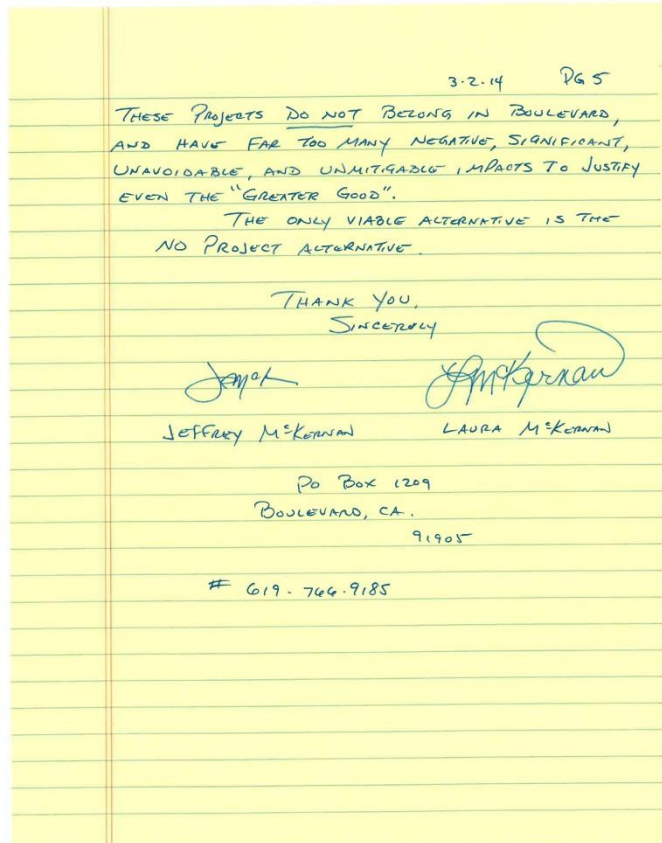 3-2-14 PG 5
THESE PROJECTS DO NOT BELONG IN BOULEVARD,
AND HAVE FAR TOO MANY NEGATIVE, SIGNIFICANT,
UNAVOIDABLE, AND UNMITIGABLE IMPACTS TO JUSTIFY
EVEN THE "GREATER GOOD".
THE ONLY VIABLE ALTERNATIVE IS THE
NO PROJECT ALTERNATIVE.
THANK YOU,
SINCERELY
LMcKernan
JEFFREY McKERNAN LAURA McKERNAN
PO BOX 1209
BOULEVARD, CA.
91905
# 619-766-9185